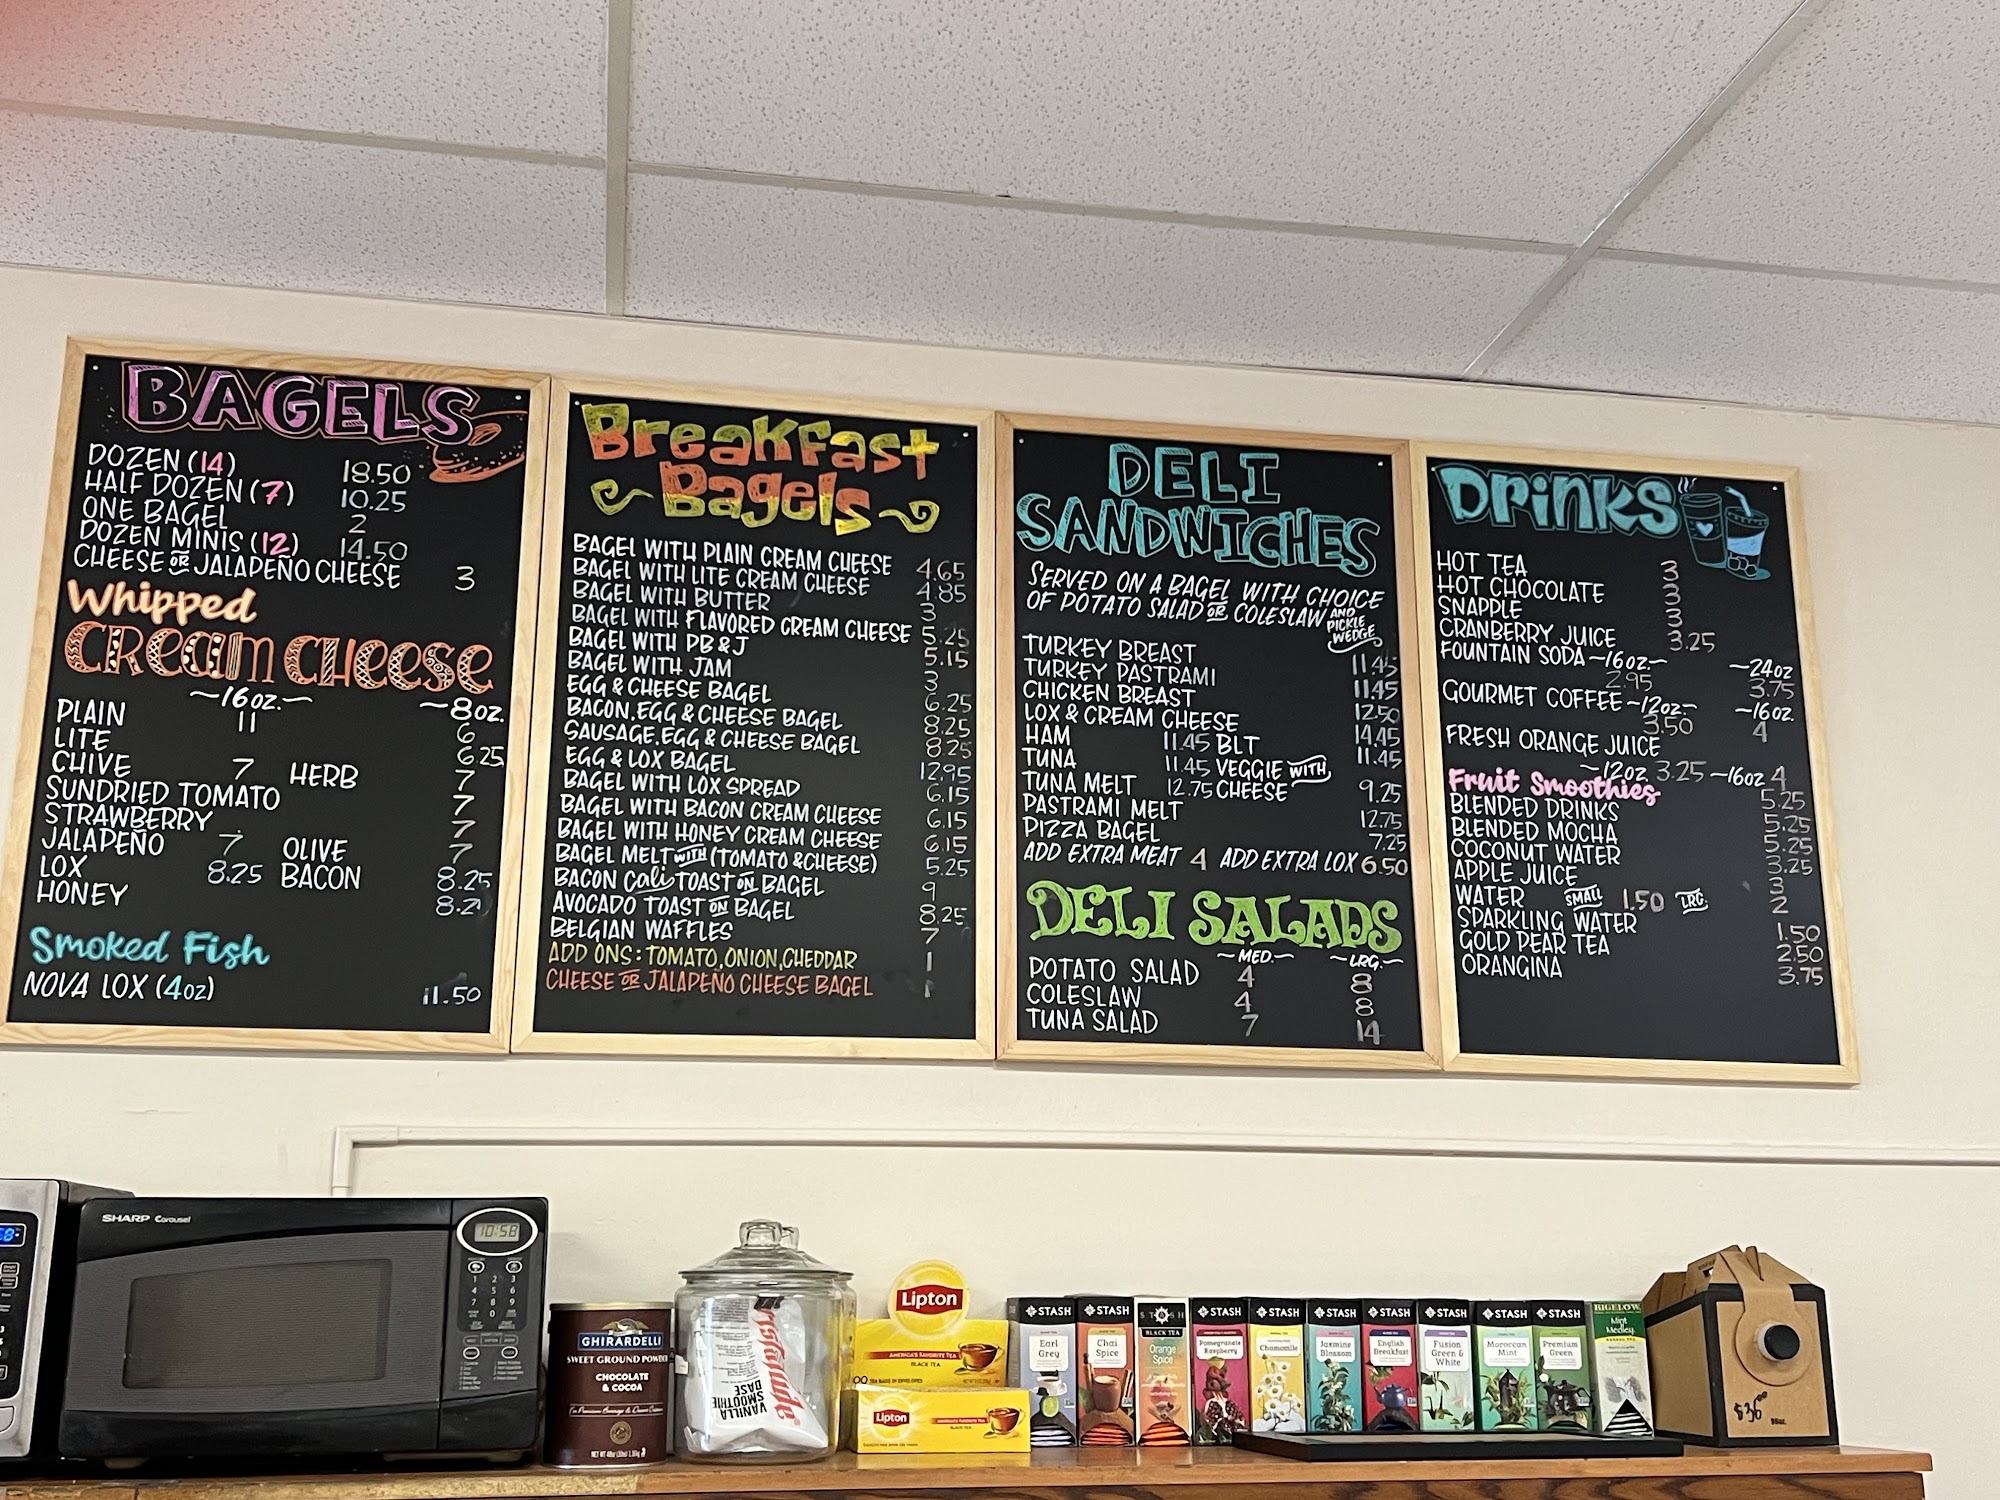 BAGELS
DOZEN (14) 18.50
HALF DOZEN (7) 10.25
ONE BAGEL 2
DOZEN MINIS (12) 14.50
CHEESE OR JALAPEÑO CHEESE 3
Whipped
CREAM CHEESE
~16oz.~ ~8oz.
PLAIN 11 6
LITE 6.25
CHIVE 7 HERB 7
SUNDRIED TOMATO 7
STRAWBERRY 7
JALAPEÑO 7 OLIVE 7
LOX 8.25 BACON 8.25
HONEY
Smoked Fish
NOVA LOX (4oz) 11.50
Breakfast
Bagels
BAGEL WITH PLAIN CREAM CHEESE 4.65
BAGEL WITH LITE CREAM CHEESE 4.85
BAGEL WITH BUTTER 3
BAGEL WITH FLAVORED CREAM CHEESE 5.25
BAGEL WITH PB & J 5.15
BAGEL WITH JAM 3
EGG & CHEESE BAGEL 6.25
BACON, EGG & CHEESE BAGEL 8.25
SAUSAGE, EGG & CHEESE BAGEL 8.25
EGG & LOX BAGEL 12.95
BAGEL WITH LOX SPREAD 6.15
BAGEL WITH BACON CREAM CHEESE 6.15
BAGEL WITH HONEY CREAM CHEESE 6.15
BAGEL MELT WITH (TOMATO & CHEESE) 5.25
BACON Cali TOAST ON BAGEL 9
AVOCADO TOAST ON BAGEL 8.25
BELGIAN WAFFLES 7
ADD ONS: TOMATO, ONION, CHEDDAR 1
CHEESE OR JALAPEÑO CHEESE BAGEL 1
DELI
SANDWICHES
SERVED ON A BAGEL WITH CHOICE
OF POTATO SALAD OR COLESLAW AND PICKLE WEDGE
TURKEY BREAST 11.45
TURKEY PASTRAMI 11.45
CHICKEN BREAST 12.50
LOX & CREAM CHEESE 14.45
HAM 11.45 BLT 11.45
TUNA 11.45 VEGGIE WITH
TUNA MELT 12.75 CHEESE 9.25
PASTRAMI MELT 12.75
PIZZA BAGEL 7.25
ADD EXTRA MEAT 4 ADD EXTRA LOX 6.50
DELI SALADS
~MED.~ ~LRG.~
POTATO SALAD 4 8
COLESLAW 4 8
TUNA SALAD 7 14
DRINKS
HOT TEA 3
HOT CHOCOLATE 3
SNAPPLE 3
CRANBERRY JUICE 3.25
FOUNTAIN SODA ~16oz.~ ~24oz
2.95 3.75
GOURMET COFFEE ~12oz.~ ~16oz.
3.50 4
FRESH ORANGE JUICE
~12oz 3.25 ~16oz 4
Fruit Smoothies 5.25
BLENDED DRINKS 5.25
BLENDED MOCHA 5.25
COCONUT WATER 3.25
APPLE JUICE 3
WATER SMALL 1.50 LRG. 2
SPARKLING WATER 1.50
GOLD PEAR TEA 2.50
ORANGINA 3.75
SHARP Carousel
10:58
GHIRARDELLI
SWEET GROUND POWDER
CHOCOLATE
& COCOA
VANILLA
SMOOTHIE
BASE
Lipton
AMERICA'S FAVORITE TEA
BLACK TEA
Lipton
BLACK TEA
STASH
Earl
Grey
STASH
Chai
Spice
STASH
BLACK TEA
Orange
Spice
STASH
Pomegranate
Raspberry
STASH
Chamomile
STASH
Jasmine
Blossom
STASH
English
Breakfast
STASH
Fusion
Green &
White
STASH
Moroccan
Mint
STASH
Premium
Green
BIGELOW
Mint
Medley
$36